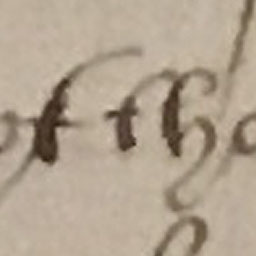 of tho